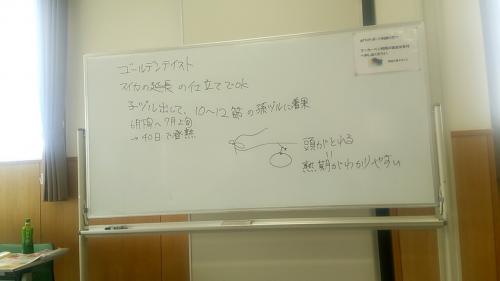 ゴールデンテイスト
スイカの延長の仕立てでOK
子ヅル出して、10〜12節の孫ヅルに着果
6月下旬〜7月上旬
→40日で登熟
頭がとれる
||
熟期がわかりやすい